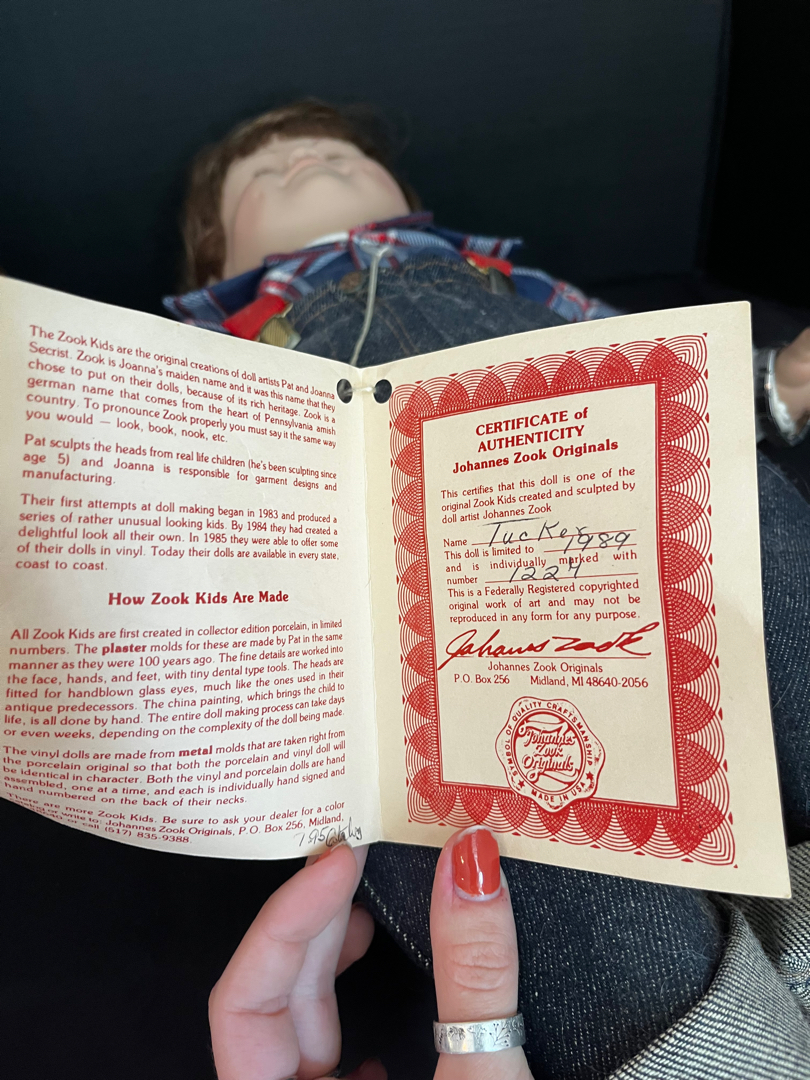 The Zook Kids are the original creations of doll artists Pat and Joanna
Secrist. Zook is Joanna's maiden name and it was this name that they
chose to put on their dolls, because of its rich heritage. Zook is a
german name that comes from the heart of Pennsylvania amish
country. To pronounce Zook properly you must say it the same way
you would — look, book, nook, etc.
Pat sculpts the heads from real life children (he's been sculpting since
age 5) and Joanna is responsible for garment designs and
manufacturing.
Their first attempts at doll making began in 1983 and produced a
series of rather unusual looking kids. By 1984 they had created a
delightful look all their own. In 1985 they were able to offer some
of their dolls in vinyl. Today their dolls are available in every state,
coast to coast.
How Zook Kids Are Made
All Zook Kids are first created in collector edition porcelain, in limited
numbers. The plaster molds for these are made by Pat in the same
manner as they were 100 years ago. The fine details are worked into
the face, hands, and feet, with tiny dental type tools. The heads are
fitted for handblown glass eyes, much like the ones used in their
antique predecessors. The china painting, which brings the child to
life, is all done by hand. The entire doll making process can take days
or even weeks, depending on the complexity of the doll being made.
The vinyl dolls are made from metal molds that are taken right from
the porcelain original so that both the porcelain and vinyl doll will
be identical in character. Both the vinyl and porcelain dolls are hand
assembled, one at a time, and each is individually hand signed and
hand numbered on the back of their necks.
There are more Zook Kids. Be sure to ask your dealer for a color
or write to: Johannes Zook Originals, P.O. Box 256, Midland,
or call (517) 835-9388.
CERTIFICATE of
AUTHENTICITY
Johannes Zook Originals
This certifies that this doll is one of the
original Zook Kids created and sculpted by
doll artist Johannes Zook
Name Tucker
This doll is limited to 1989
and is individually marked with
number 1224
This is a Federally Registered copyrighted
original work of art and may not be
reproduced in any form for any purpose.
Johannes Zook
Johannes Zook Originals
P.O. Box 256 Midland, MI 48640-2056
SYMBOL OF QUALITY CRAFTSMANSHIP
Johannes
Zook
Originals
MADE IN USA